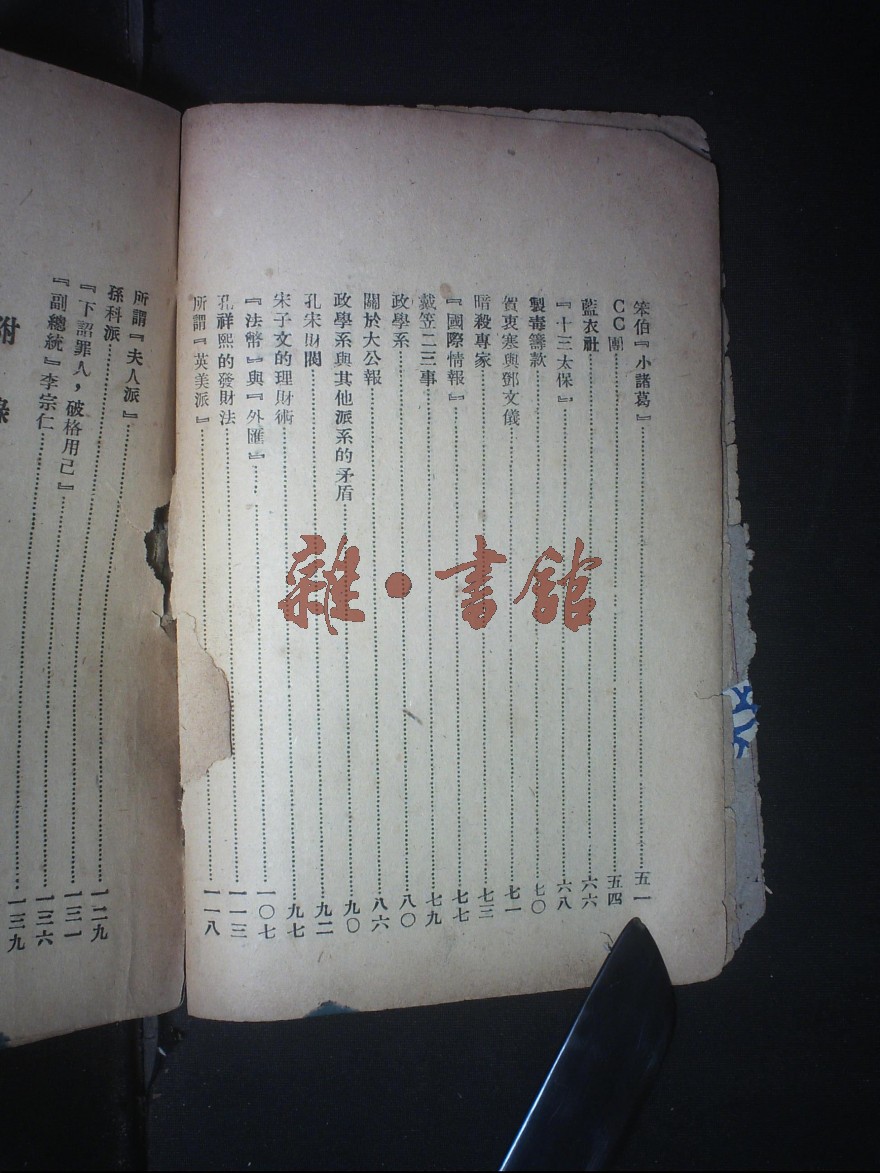 笨伯『小諸葛』……五一
CC團……五四
藍衣社……六六
『十三太保』……六八
製毒籌款……七〇
賀衷寒與鄧文儀……七一
暗殺專家……七三
『國際情報』……七七
戴笠二三事……七九
政學系……八〇
關於大公報……八六
政學系與其他派系的矛盾……九〇
孔宋財閥……九二
宋子文的理財術……九七
『法幣』與『外匯』……一〇七
孔祥熙的發財法……一一三
所謂『英美派』……一一八
所謂『夫人派』……一二九
孫科派……一三一
『下詔罪人，破格用己』……一三六
『副總統』李宗仁……一三九
附錄
雜·書館